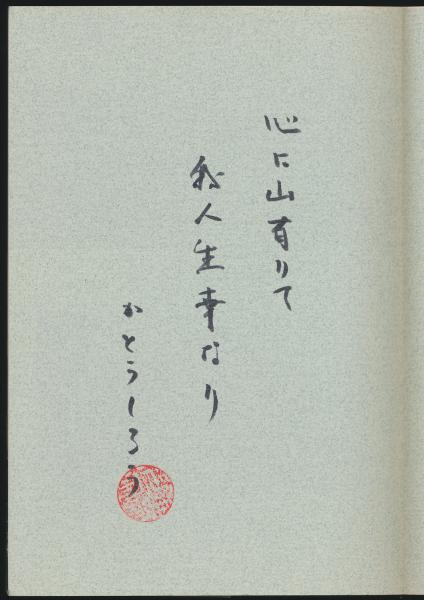 心に山有りて
我人生幸なり
かとうしろう